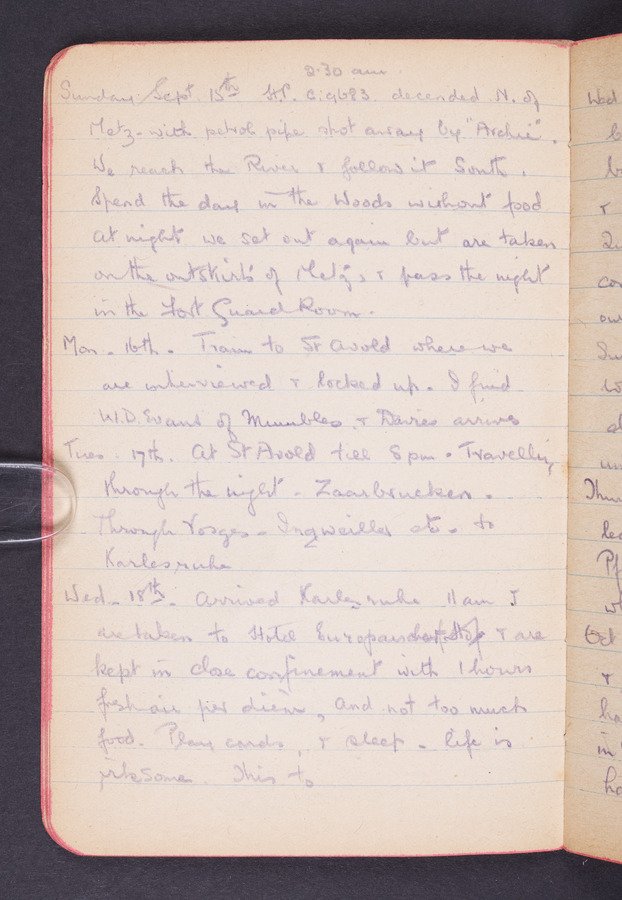 2.30 am
Sunday Sept. 15th H.P. C.9683 decended N. of
Metz - with petrol pipe shot away by "Archie".
We reach the River & follow it South.
Spend the day in the Woods without food
at night we set out again but are taken
on the outskirts of Metz, & pass the night
in the Fort Guard Room.
Mon. 16th. Tram to St Avold where we
are interviewed & locked up. I find
W.D. Evans of Mumbles & Davies arrives
Tues. 17th. At St Avold till 8 pm. Travelling
through the night - Zaarbrucken.
Through Vosges - Ingweiller etc. to
Karlesruhe
Wed. 18th. Arrived Karlesruhe 11 am &
are taken to Hotel & are
kept in close confinement with 1 hours
fresh air per diem, and not too much
food. Play cards, & sleep - life is
irksome. This to